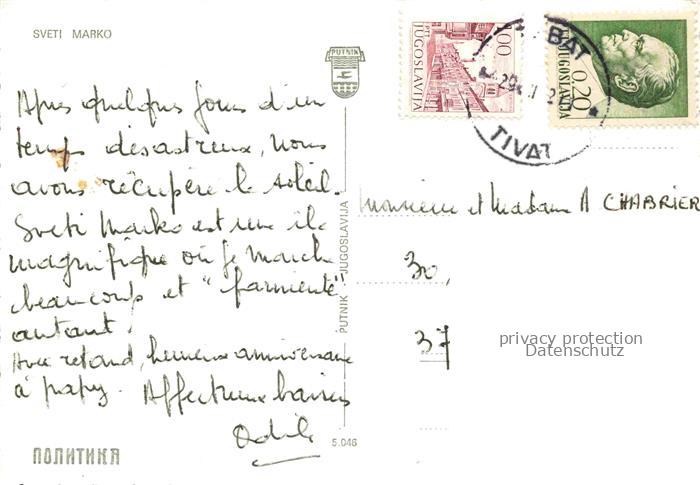 SVETI MARKO
PUTNIK
Après quelques jours d'un
temps désastreux, nous
avons récupéré le soleil.
Sveti Marko est une île
magnifique où je marche
beaucoup et "farniente"
autant.
Avec retard, heureux anniversaire
à papy. Affectueux baisers
Odile
ПОЛИТИКА
PUTNIK - JUGOSLAVIJA
5.046
PTT JUGOSLAVIJA
JUGOSLAVIJA 0.20
TIVAT
Monsieur et Madame A CHABRIER
30,
37
privacy protection
Datenschutz